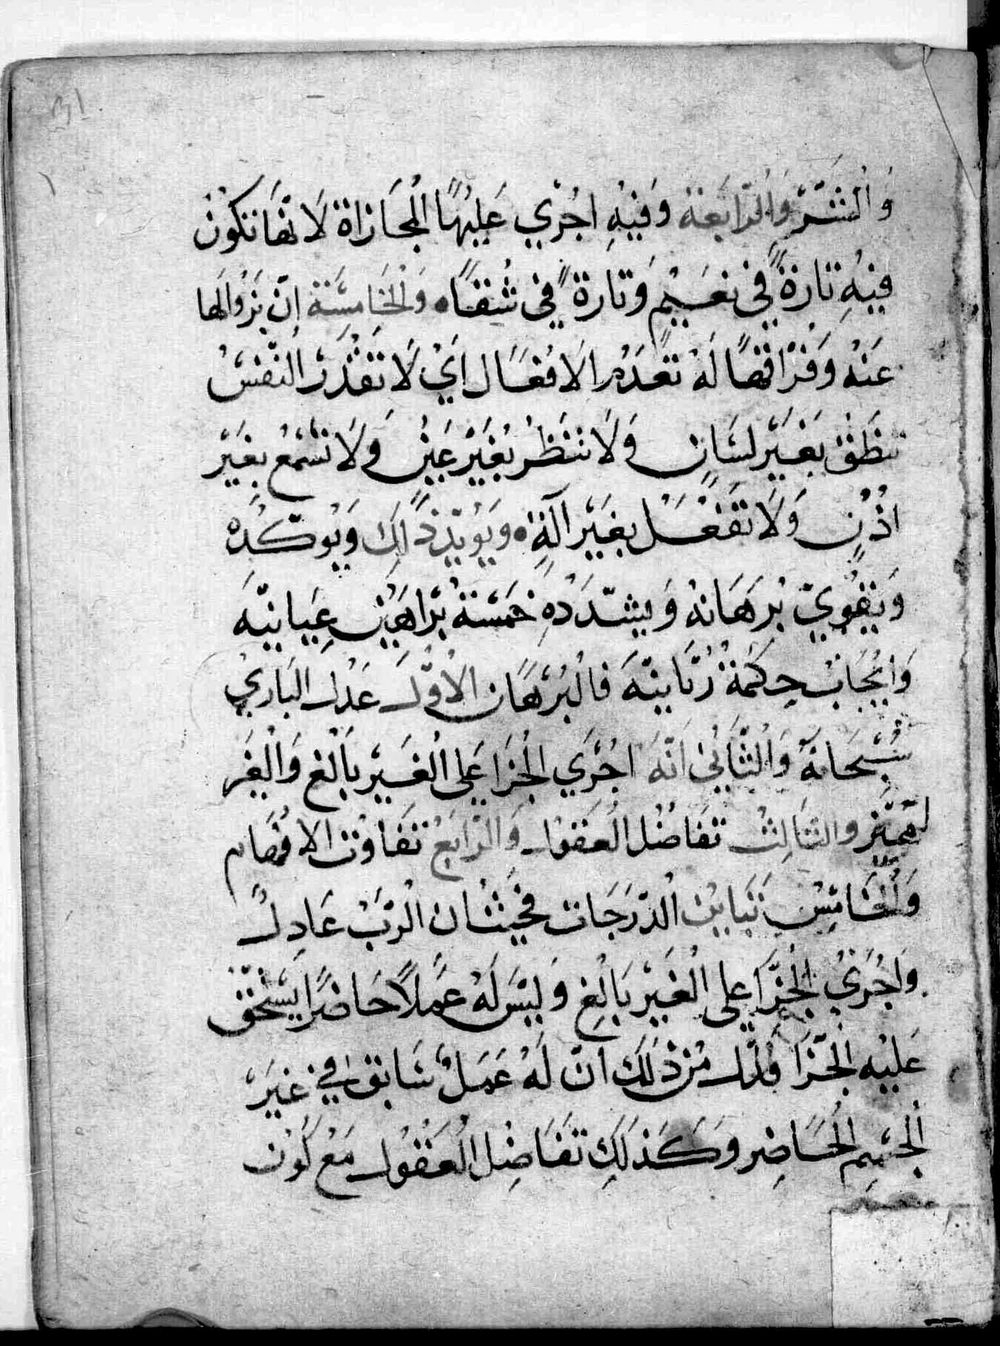 31
وَالشَّرّ وَالرّابَعَة وَفيْهِ اجُرْي عَليْهَا الْمجَازاة لَانّهَا تكُونْ
فيْهِ تارَةً فيْ نعَيْم وَتارةً في شْقَآ وَالْخَامِسَة انّ بزوَالها
عَنْهُ وَفرَاقهَا لَهْ تعْدَمْ الافعَال ايْ لَا تَقْدرْ النّفسْ
تنطَقْ بغَيْر لسَانٍ وَلَا تنَظرْ بغَيْر عَينْ وَلَا تسْمَعْ بغَيْر
اذْنٍ وَلَا تَفْعَلْ بغَيْر آلةٍ وَيؤيّدْ ذْلك وَيُوكّدُه
وَيَقوّيْ بُرهَانهْ وَيشدّدْهِ خمسَة بْرَاهيْن عيانيّه
وَايْجابْ حِكمَةْ رْبّانيّهَ فالبُرْهَان الْاوّل عَدْل البَاريْ
سُبْحَانهْ وَالثّانيْ انّهَ اجُرْي الجزا عَلى الْغَيْر بَالْغ وَالْغَر
لممَيّز والثالثْ تفَاضْل الْعقوْل وَالرّابَعْ تَفَاوت الافْهَام
وَالْخَامسْ تبَاينْ الْدّرَجَات فحَيْث ان الْرّبّ عَادِلْ
وَاجُرْيْ الجْزَا عَلى الْغَيْر بَالْغ وَلَيْسَ لَهْ عَمَلاً حَاضرًا يسْتحَقّ
عَليْه الجْزَا فدْل منْ ذْلك انّ لَهْ عَمَلْ سَابق في غيَرْ
الْجسْم الْحَاضِر وَكَذلَك تفَاضِل الْعقوْل مَعْ كَونْ